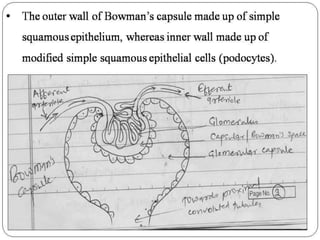 • The outer wall of Bowman's capsule made up of simple
squamous epithelium, whereas inner wall made up of
modified simple squamous epithelial cells (podocytes).
Afferent
arteriole
Efferent
arteriole
Glomerulus
Capsular / Bowman's space
Glomerular capsule
Bowman's
Capsule
Towards proximal
convoluted tubules
Page No. 2